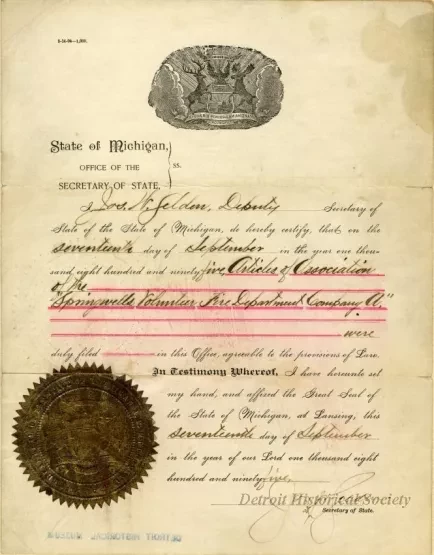 State of Michigan,
OFFICE OF THE
SECRETARY OF STATE.
ss.
I, Jos. N. Selden, Deputy Secretary of
State of the State of Michigan, do hereby certify, that on the
seventeenth day of September in the year one thou-
sand eight hundred and ninety five Articles of Association
of the
"Springwells Volunteer Fire Department Company A"
were
duly filed in this Office, agreeable to the provisions of Law.
In Testimony Whereof, I have hereunto set
my hand, and affixed the Great Seal of
the State of Michigan, at Lansing, this
seventeenth day of September
in the year of our Lord one thousand eight
hundred and ninety five.
Detroit Historical Society
Secretary of State.